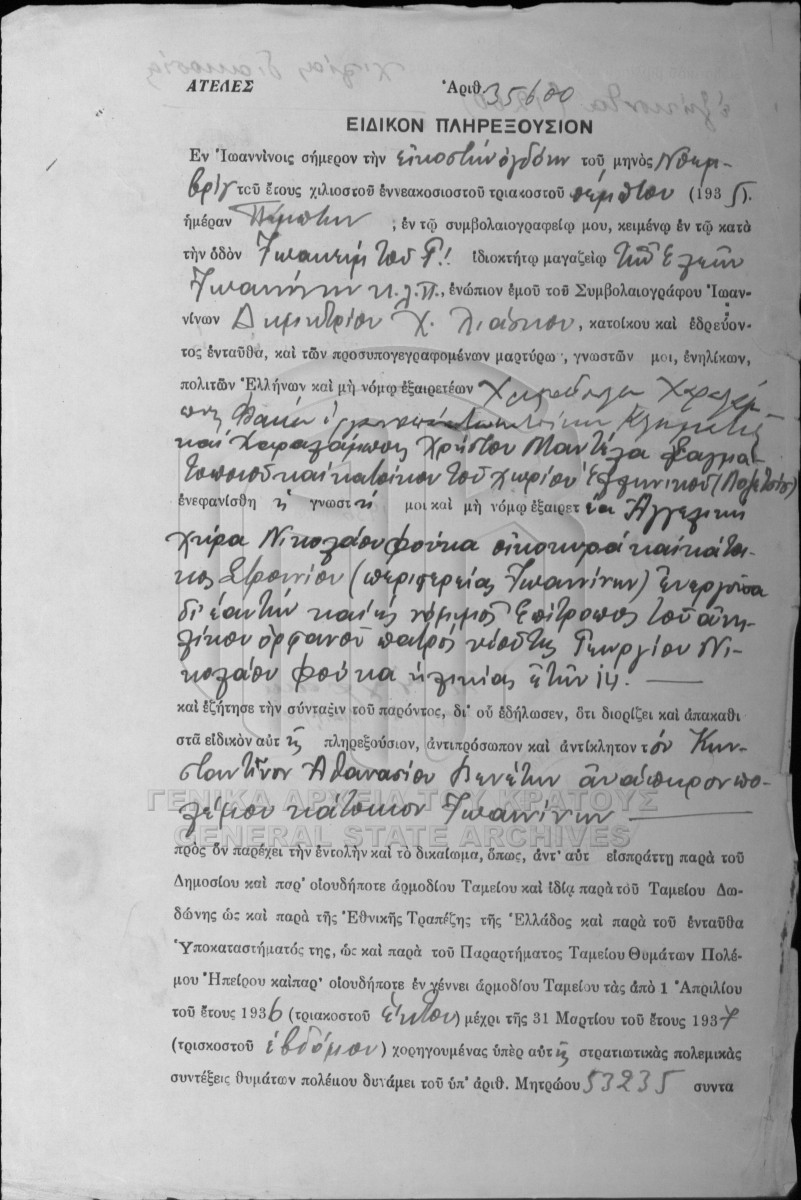 ΑΤΕΛΕΣ Ἀριθ. 35600
ΕΙΔΙΚΟΝ ΠΛΗΡΕΞΟΥΣΙΟΝ
Εν Ἰωαννίνοις σήμερον τὴν εἰκοστὴν ὀγδόην τοῦ μηνὸς Νοεμ-
βρίου τοῦ ἔτους χιλιοστοῦ ἐννεακοσιοστοῦ τριακοστοῦ πέμπτου (1935).
ἡμέραν Πέμπτην, ἐν τῷ συμβολαιογραφείῳ μου, κειμένῳ ἐν τῷ κατὰ
τὴν ὁδὸν Ἰωακεὶμ τοῦ Γ! ἰδιοκτήτῳ μαγαζείῳ τῶν Ἐλεῶν
Ἰωαννίνων κ.λ.π., ἐνώπιον ἐμοῦ τοῦ Συμβολαιογράφου Ἰωαν-
νίνων Δημητρίου Χ. Λιάσκου, κατοίκου καὶ ἑδρεύον-
τος ἐνταῦθα, καὶ τῶν προσυπογεγραφομένων μαρτύρω, γνωστῶν μοι, ἐνηλίκων,
πολιτῶν Ἑλλήνων καὶ μὴ νόμῳ ἐξαιρετέων Χαραλάμ-
πους
καὶ Χαραλάμπους Χρήστου Μαντέλα σαγμα-
τοποιοῦ καὶ κατοίκου τοῦ χωρίου Ἑλληνικοῦ
ἐνεφανίσθη ἡ γνωστ ή μοι καὶ μὴ νόμῳ ἐξαιρετ έα Ἀγγελικὴ
χήρα Νικολάου Φούκα οἰκοκυρὰ καὶ κάτοι-
κος Σερβιανων (περιφερείας Ἰωαννίνων) ἐνεργοῦσα
δι' ἑαυτὴν καὶ ὡς νόμιμος ἐπίτροπος τοῦ ἀνη-
λίκου ὀρφανοῦ πατρὸς υἱοῦ της Γεωργίου Νι-
κολάου Φούκα ἡλικίας ἐτῶν 14.
καὶ ἐζήτησε τὴν σύνταξιν τοῦ παρόντος, δι' οὗ ἐδήλωσεν, ὅτι διορίζει καὶ ἀπακαθι
στᾶ εἰδικὸν αὐτ ῆς πληρεξούσιον, ἀντιπρόσωπον καὶ ἀντίκλητον τ όν Κων-
σταντῖνον Ἀθανασίου Βενέτην ἀνάπηρον πο-
λέμου κάτοικον Ἰωαννίνων
πρὸς ὃν παρέχει τὴν ἐντολὴν καὶ τὸ δικαίωμα, ὅπως, ἀντ' αὐτ εἰσπράττῃ παρὰ τοῦ
Δημοσίου καὶ παρ' οἱουδήποτε ἁρμοδίου Ταμείου καὶ ἰδίᾳ παρὰ τοῦ Ταμείου Δω-
δώνης ὡς καὶ παρὰ τῆς Ἐθνικῆς Τραπέζης τῆς Ἑλλάδος καὶ παρὰ τοῦ ἐνταῦθα
Ὑποκαταστήματός της, ὡς καὶ παρὰ τοῦ Παραρτήματος Ταμείου Θυμάτων Πολέ-
μου Ἠπείρου καὶπαρ' οἱουδήποτε ἐν γέννει ἁρμοδίου Ταμείου τὰς ἀπὸ 1 Ἀπριλίου
τοῦ ἔτους 1936 (τριακοστοῦ ἕκτου) μέχρι τῆς 31 Μαρτίου τοῦ ἔτους 1937
(τρισκοστοῦ ἑβδόμου) χορηγουμένας ὑπὲρ αὐτ ῆς στρατιωτικὰς πολεμικὰς
συντέξεις θυμάτων πολέμου δυνάμει τοῦ ὑπ' ἀριθ. Μητρώου 53235 συντα
ΓΕΝΙΚΑ ΑΡΧΕΙΑ ΤΟΥ ΚΡΑΤΟΥΣ
GENERAL STATE ARCHIVES